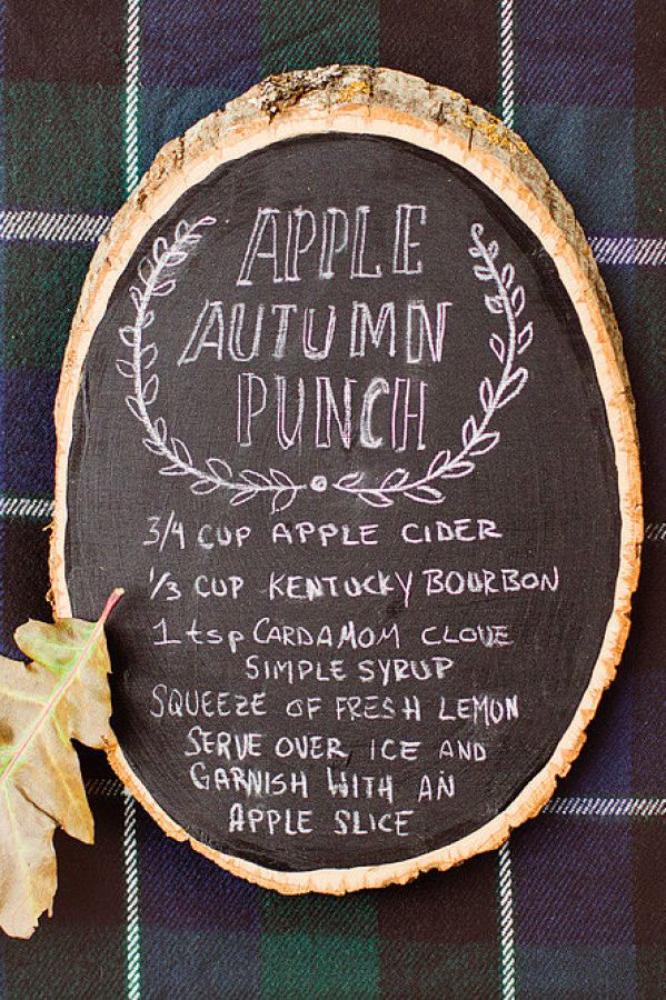 APPLE
AUTUMN
PUNCH
3/4 CUP APPLE CIDER
1/3 CUP KENTUCKY BOURBON
1 tsp CARDAMOM CLOVE
SIMPLE SYRUP
SQUEEZE OF FRESH LEMON
SERVE OVER ICE AND
GARNISH WITH AN
APPLE SLICE